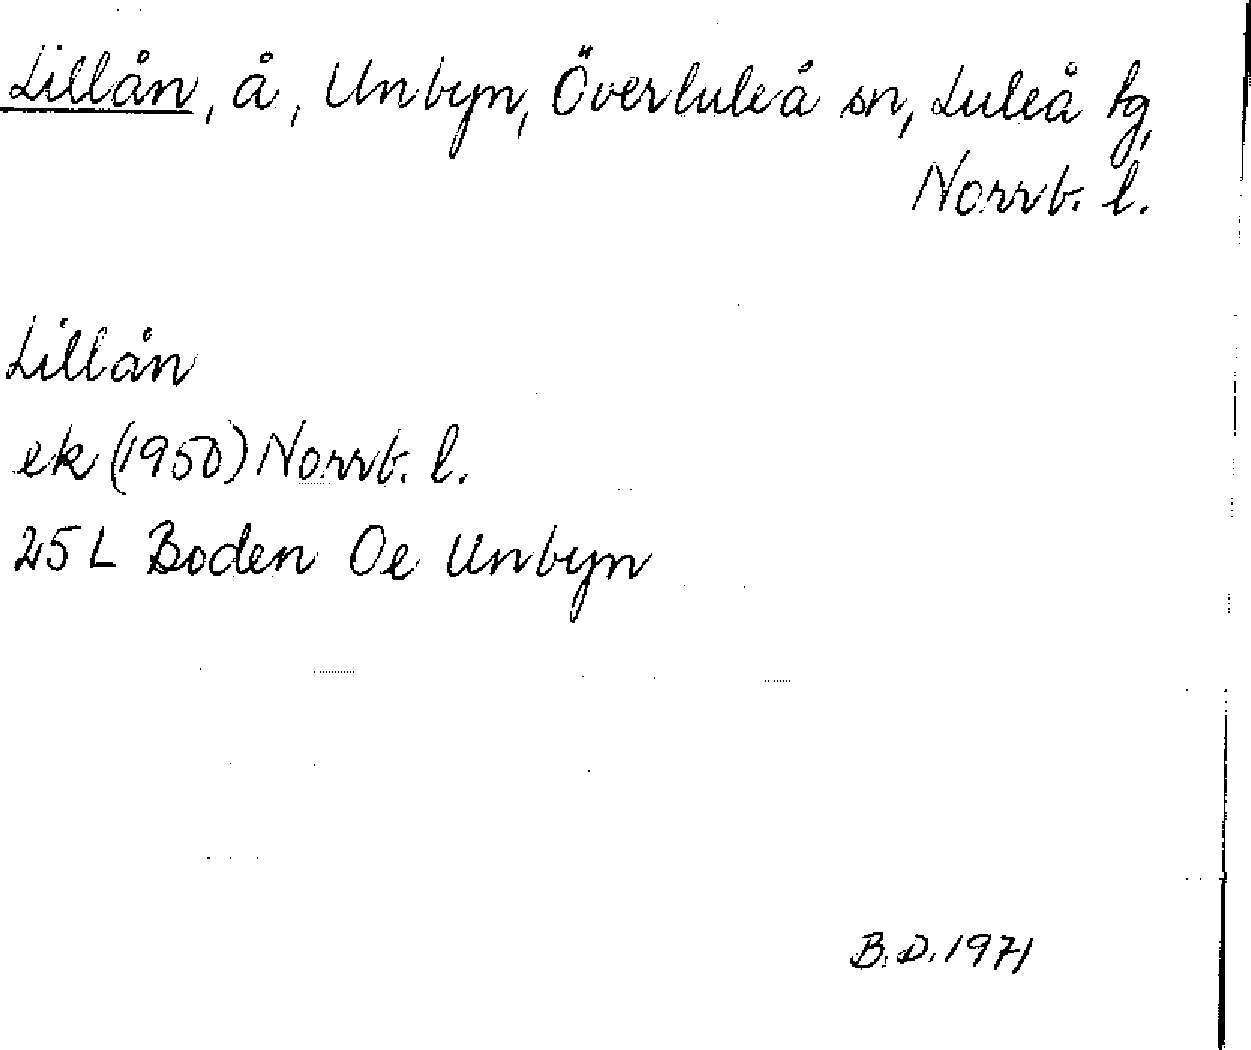 Lillån, å, Unbyn, Överluleå sn, Luleå tg,
Norrb. l.
Lillån
ek (1950) Norrb. l.
25 L Boden Oe Unbyn
B.D. 1971